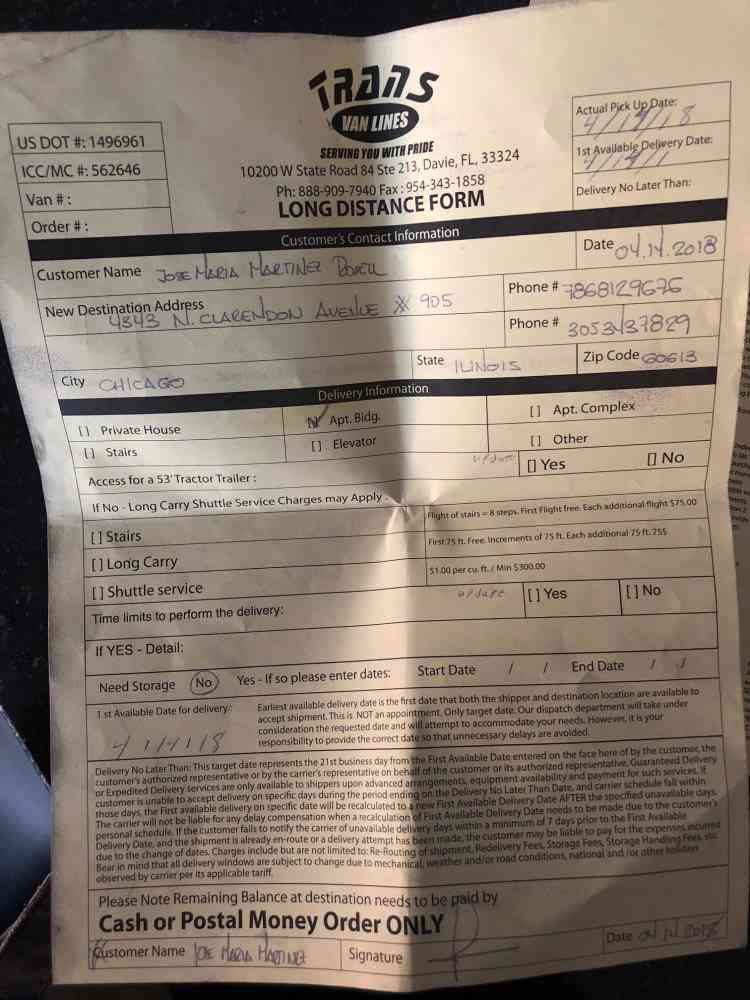 TRANS
VAN LINES
SERVING YOU WITH PRIDE
10200 W State Road 84 Ste 213, Davie, FL, 33324
Ph: 888-909-7940 Fax: 954-343-1858
LONG DISTANCE FORM
US DOT #: 1496961
ICC/MC #: 562646
Van # :
Order # :
Actual Pick Up Date:
4/14/18
1st Available Delivery Date:
4/14/1
Delivery No Later Than:
Customer's Contact Information
Customer Name JOSE MARIA MARTINEZ
Date 04.14.2018
New Destination Address
4343 N. CLARENDON AVENUE # 905
Phone # 7868129676
Phone # 3053437829
City CHICAGO
State ILINOIS
Zip Code 60613
Delivery Information
[ ] Private House
[ ] Apt. Bidg.
[ ] Apt. Complex
[ ] Stairs
[ ] Elevator
[ ] Other
Access for a 53' Tractor Trailer :
update
[ ] Yes
[ ] No
If No - Long Carry Shuttle Service Charges may Apply .
[ ] Stairs
Flight of stairs = 8 steps. First Flight free. Each additional flight $75.00
[ ] Long Carry
First 75 ft. Free. Increments of 75 ft. Each additional 75 ft. 75$
[ ] Shuttle service
$1.00 per cu. ft. / Min $300.00
Time limits to perform the delivery:
update
[ ] Yes
[ ] No
If YES - Detail:
Need Storage No Yes - If so please enter dates: Start Date / / End Date / /
1 st Available Date for delivery:
4/14/18
Earliest available delivery date is the first date that both the shipper and destination location are available to
accept shipment. This is NOT an appointment. Only target date. Our dispatch department will take under
consideration the requested date and will attempt to accommodate your needs. However, it is your
responsibility to provide the correct date so that unnecessary delays are avoided.
Delivery No Later Than: This target date represents the 21st business day from the First Available Date entered on the face here of by the customer, the
customer's authorized representative or by the carrier's representative on behalf of the customer or its authorized representative. Guaranteed Delivery
or Expedited Delivery services are only available to shippers upon advanced arrangements, equipment availability and payment for such services. If
customer is unable to accept delivery on specific days during the period ending on the Delivery No Later Than Date, and carrier schedule fall within
those days, the First available delivery on specific date will be recalculated to a new First Available Delivery Date AFTER the specified unavailable days.
The carrier will not be liable for any delay compensation when a recalculation of First Available Delivery Date needs to be made due to the customer's
personal schedule. If the customer fails to notify the carrier of unavailable delivery days within a minimum of 7 days prior to the First Available
Delivery Date, and the shipment is already en-route or a delivery attempt has been made, the customer may be liable to pay for the expenses incurred
due to the change of dates. Charges include but are not limited to: Re-Routing of shipment, Redelivery Fees, Storage Fees, Storage Handling Fees, etc.
Bear in mind that all delivery windows are subject to change due to mechanical, weather and/or road conditions, national and /or other holidays
observed by carrier per its applicable tariff.
Please Note Remaining Balance at destination needs to be paid by
Cash or Postal Money Order ONLY
Customer Name JOSE MARIA MARTINEZ
Signature
Date